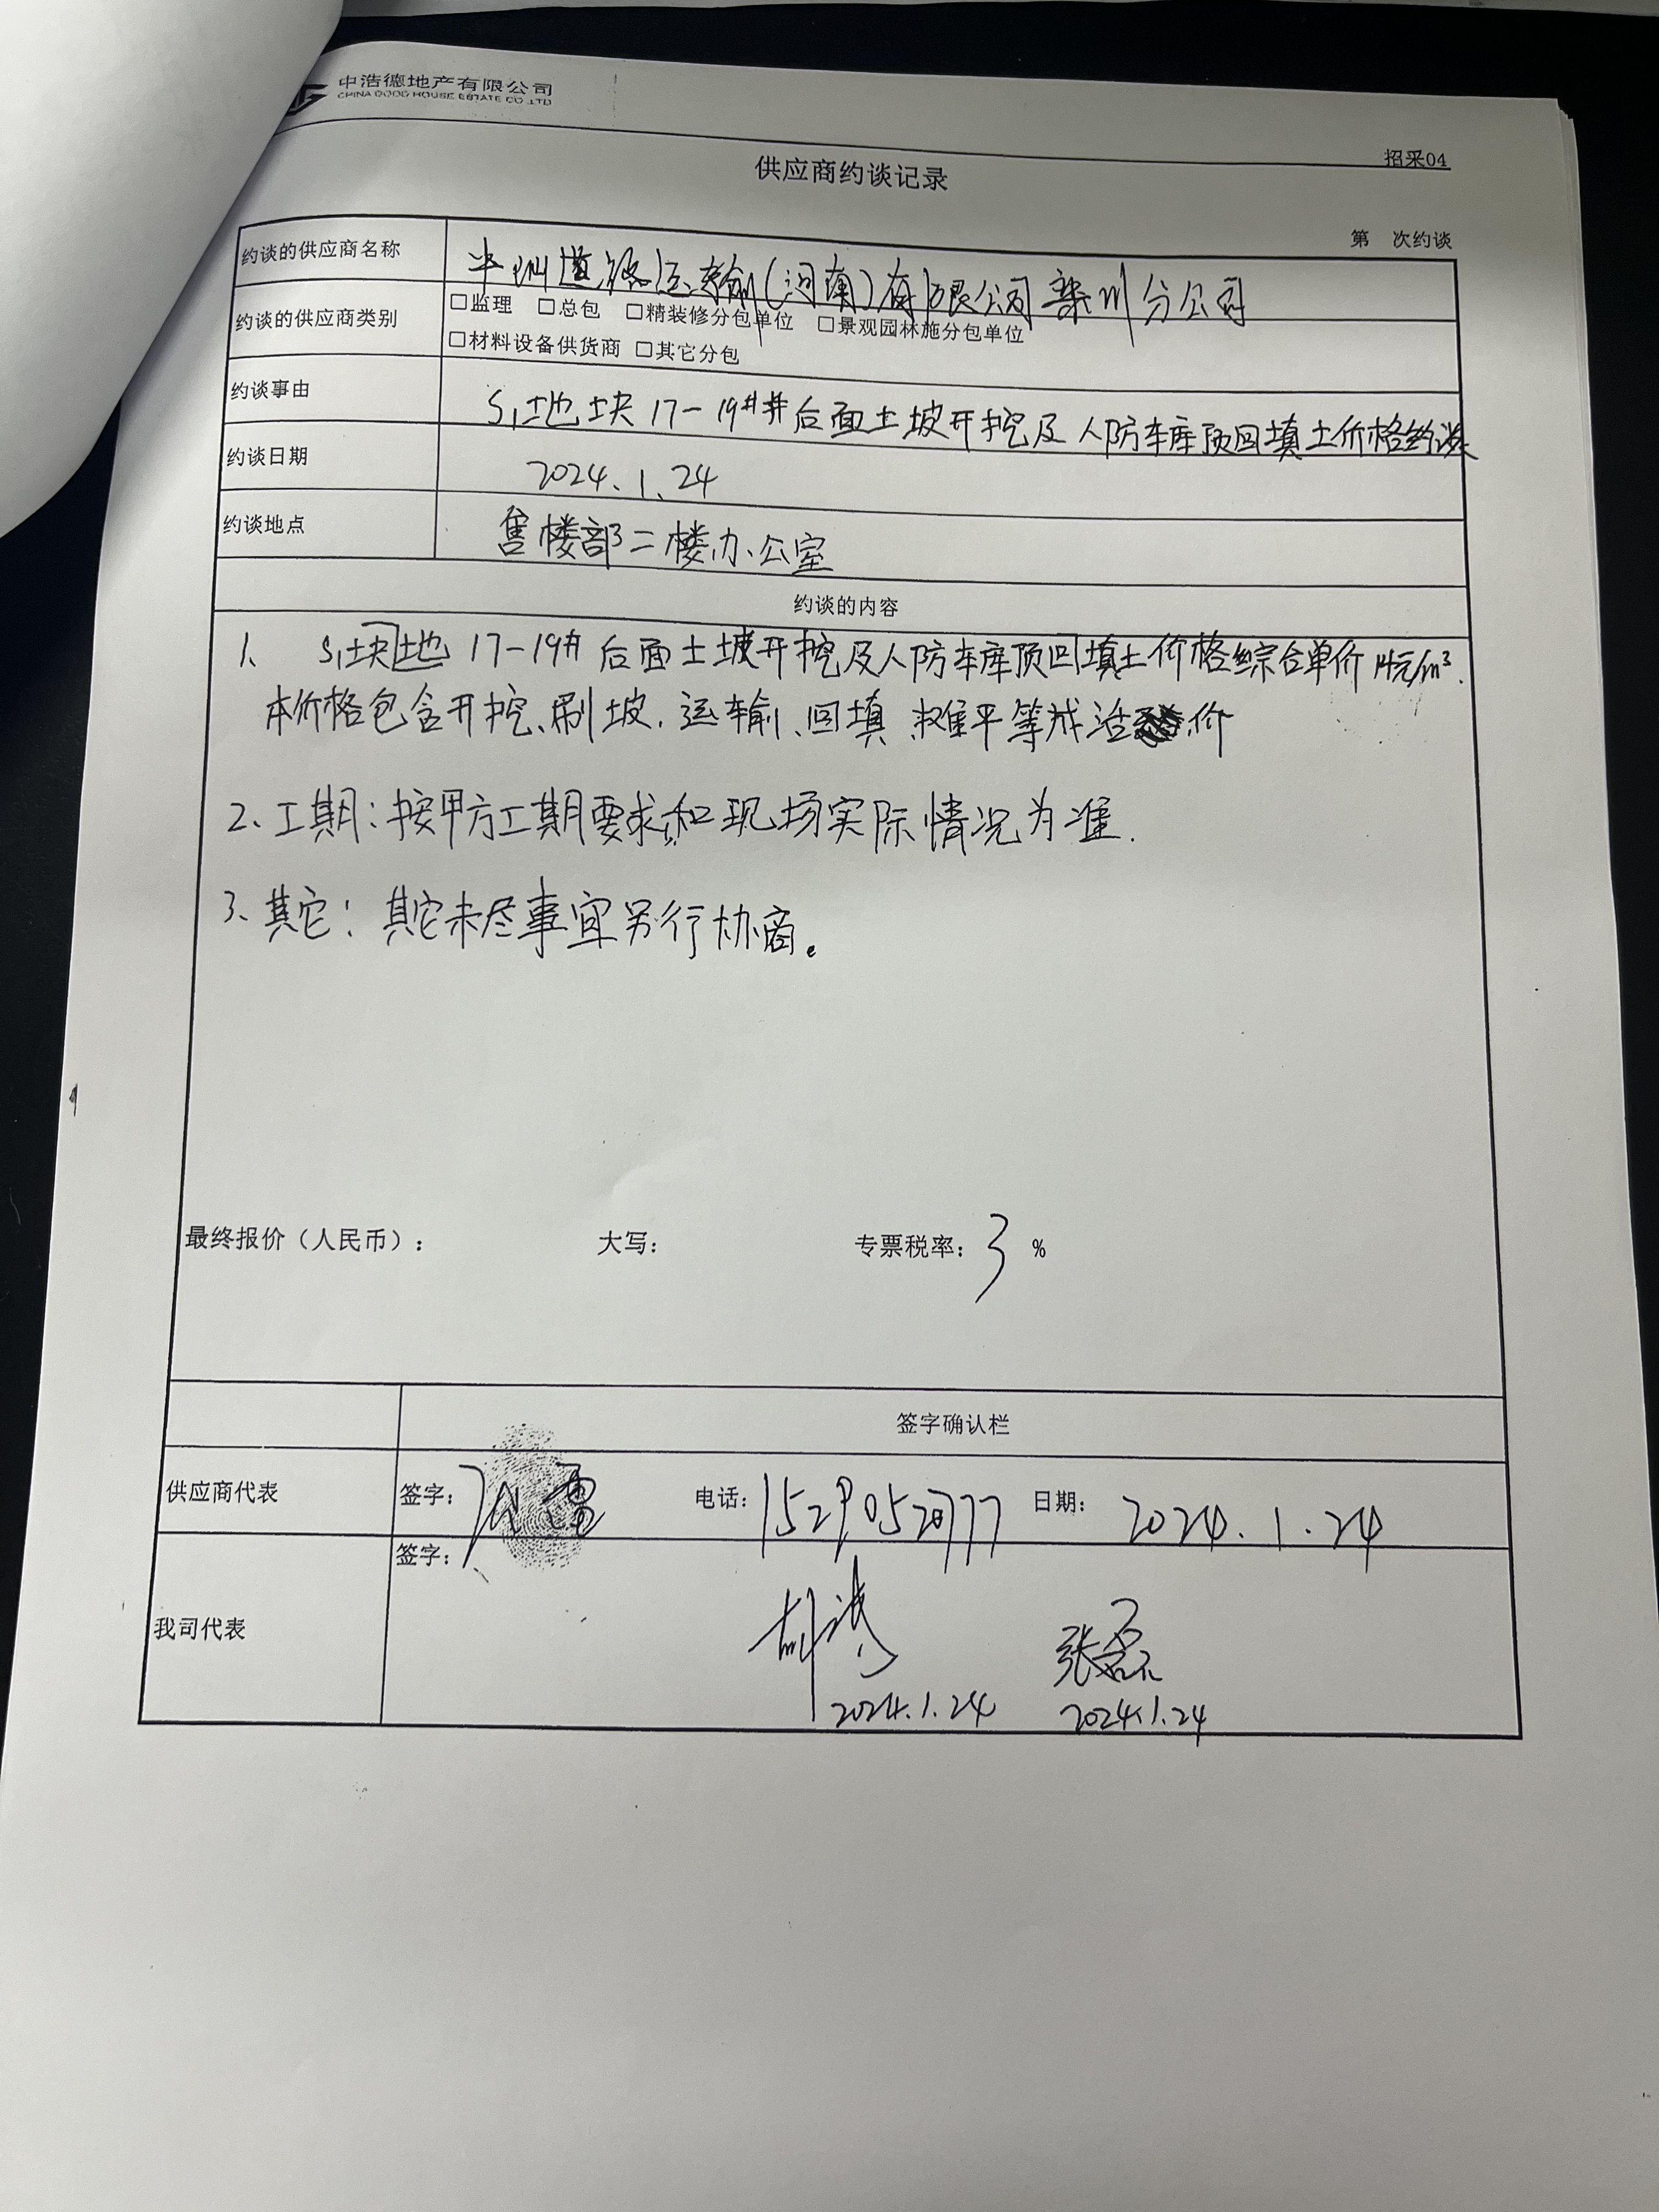 中浩德地产有限公司
CHINA GOOD HOUSE ESTATE CO.,LTD
招采04
供应商约谈记录
第 次约谈
约谈的供应商名称 道路运输(河南)有限公司栾川分公司
约谈的供应商类别 □监理 □总包 □精装修分包单位 □景观园林施分包单位
□材料设备供货商 □其它分包
约谈事由 S1地块17-19#井后面土坡开挖及人防车库顶回填土价格约谈
约谈日期 2024.1.24
约谈地点 售楼部二楼办公室
约谈的内容
1、 S1块地 17-19# 后面土坡开挖及人防车库顶回填土价格综合单价14元/m³.
本价格包含开挖、刷坡、运输、回填、摊平等成活价
2、工期:按甲方工期要求和现场实际情况为准.
3、其它:其它未尽事宜另行协商。
最终报价(人民币): 大写: 专票税率:3 %
签字确认栏
供应商代表 签字: 电话: 日期: 2024.1.24
签字:
我司代表
张磊
2024.1.24 2024.1.24